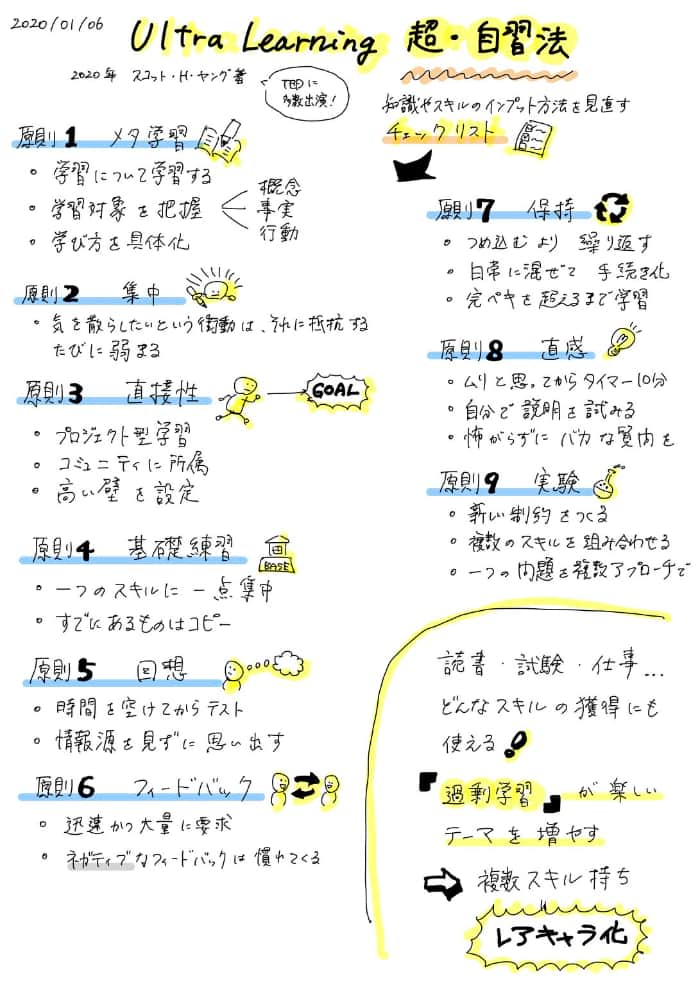 2020/01/06
Ultra Learning 超・自習法
2020年 スコット・H・ヤング著
TEDに
多数出演!
知識やスキルのインプット方法を見直す
チェックリスト
原則1 メタ学習
・学習について学習する
・学習対象を把握
概念
事実
行動
・学び方を具体化
原則2 集中
・気を散らしたいという衝動は、それに抵抗する
たびに弱まる
原則3 直接性
GOAL
・プロジェクト型学習
・コミュニティに所属
・高い壁を設定
原則4 基礎練習
BASE
・一つのスキルに一点集中
・すでにあるものはコピー
原則5 回想
・時間を空けてからテスト
・情報源を見ずに思い出す
原則6 フィードバック
・迅速かつ大量に要求
・ネガティブなフィードバックは慣れてくる
原則7 保持
・つめ込むより 繰り返す
・日常に混ぜて 手続き化
・完ペキを超えるまで学習
原則8 直感
・ムリと思ってからタイマー10分
・自分で説明を試みる
・怖がらずにバカな質問を
原則9 実験
・新しい制約をつくる
・複数のスキルを組み合わせる
・一つの問題を複数アプローチで
読書・試験・仕事...
どんなスキルの獲得にも
使える!
『過剰学習』が楽しい
テーマを増やす
⇨ 複数スキル持ち
レアキャラ化